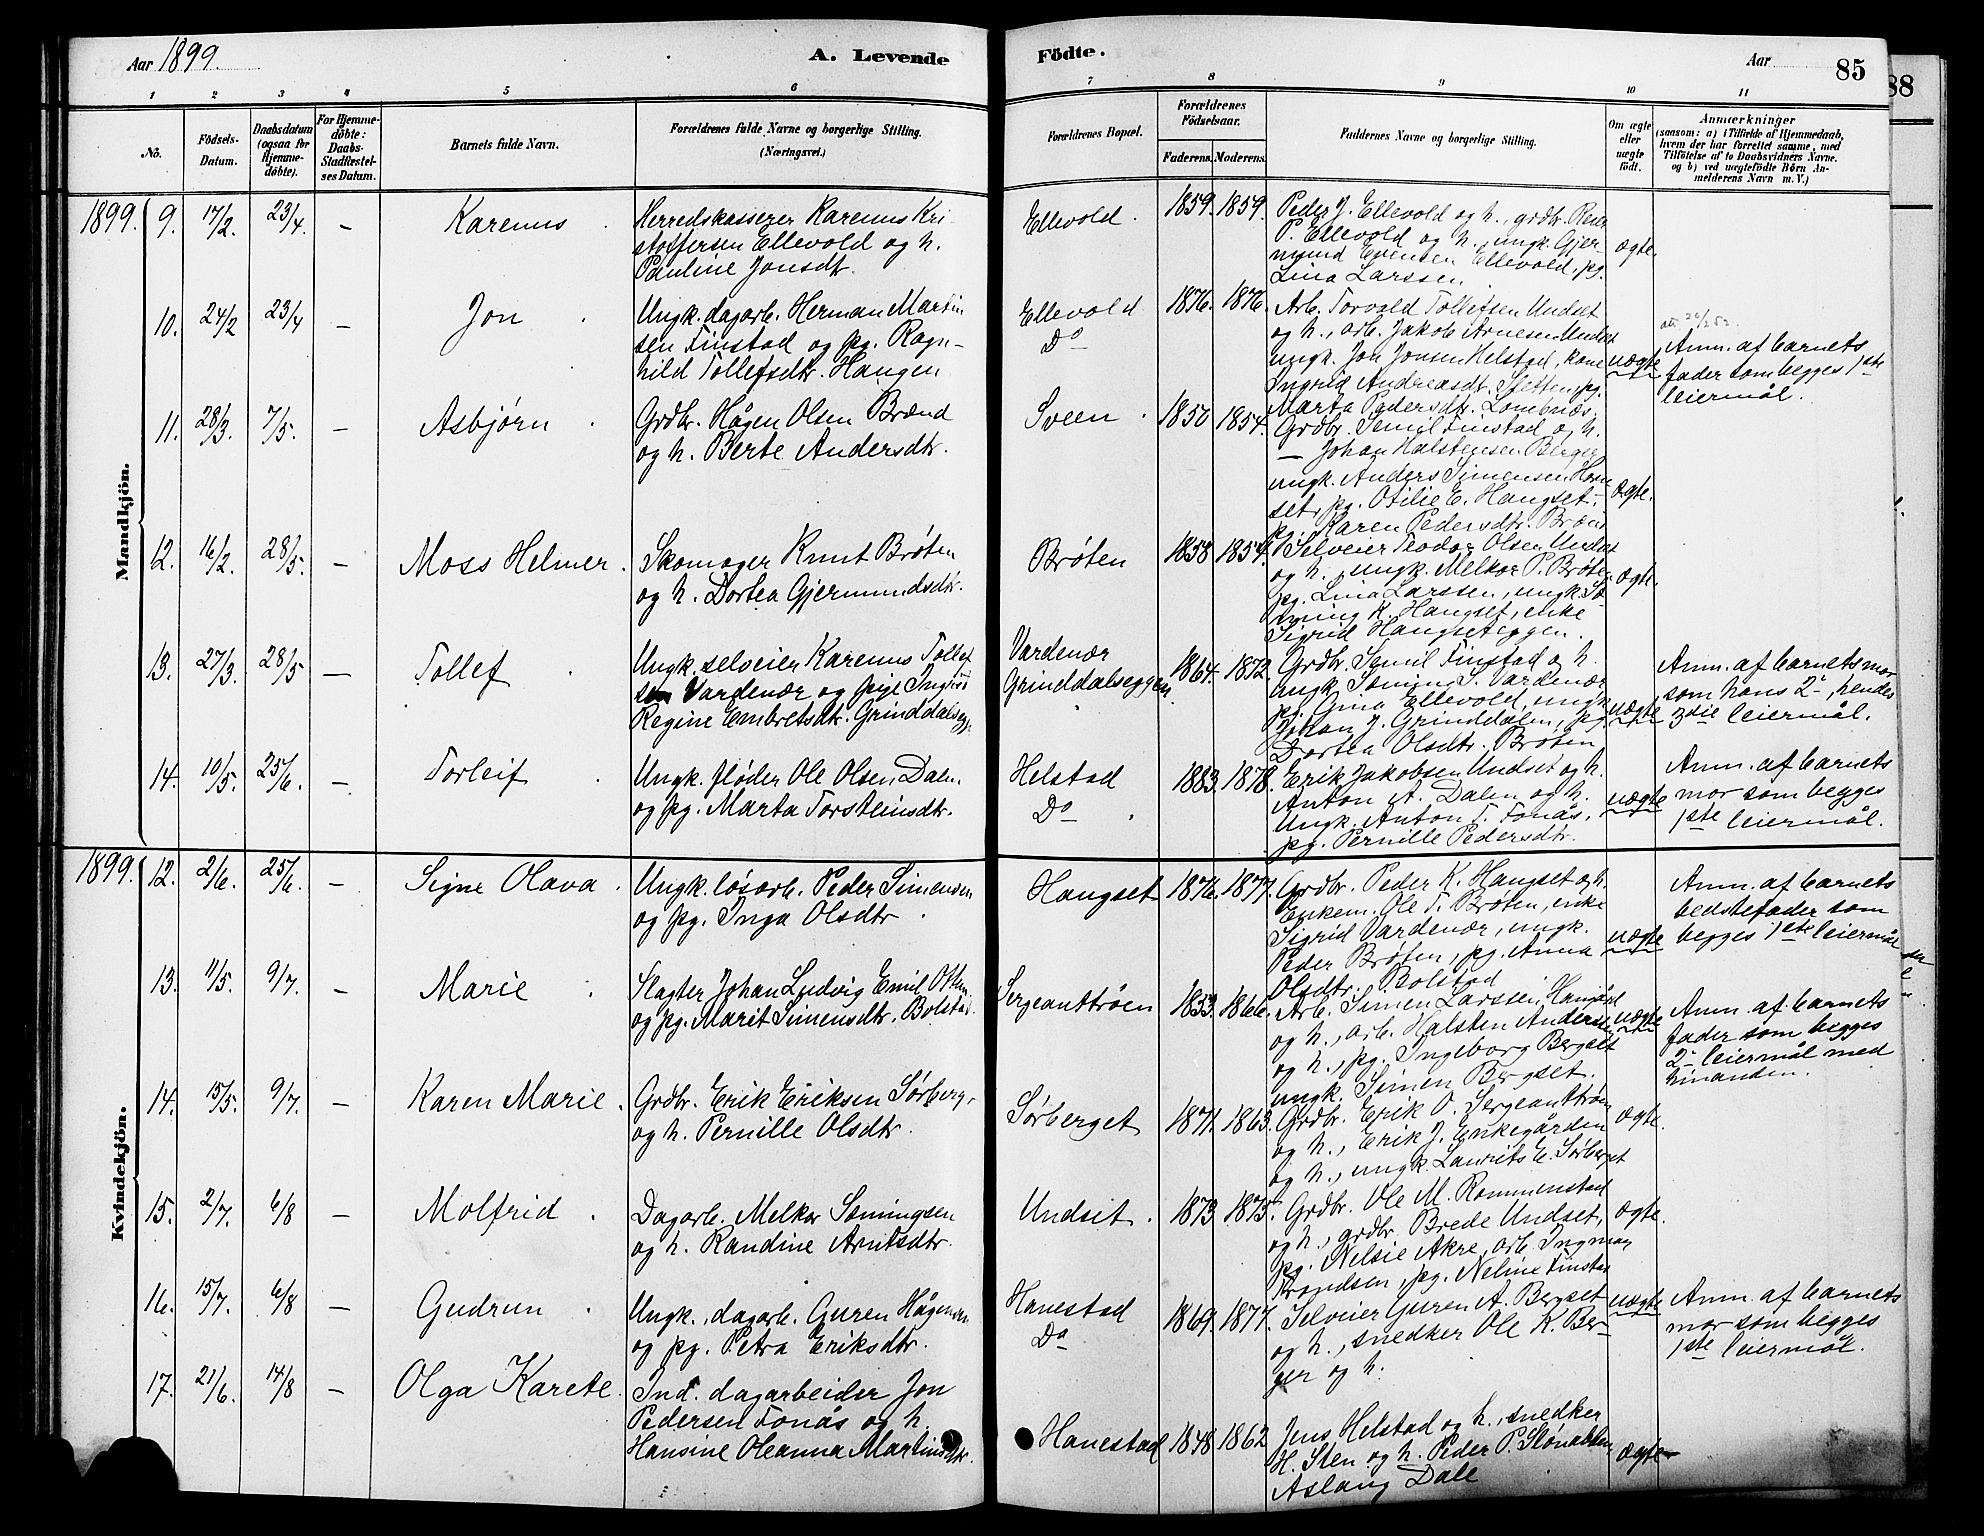 Aar 1899.
A. Levende
Födte.
Aar
85
88
1 2 3 4 5 6 7 8 9 10 11
No.
Födsels-Datum.
Daabsdatum (ogsaa for Hjemme-döbte).
For Hjemme-döbte: Daabs-Stadfæstel-ses Datum.
Barnets fulde Navn.
Forældrenes fulde Navne og borgerlige Stilling.
(Næringsvei.)
Forældrenes Bopæl.
Forældrenes Födselsaar.
Faderens. Moderens.
Faddernes Navne og borgerlige Stilling.
Om ægte eller uægte födt.
Anmærkninger
(saasom: a) i Tilfælde af Hjemmedaab,
hvem der har forrettet samme, med
Tilföielse af to Daabsvidners Navne.
og b) ved uægtefödte Börn An-
melderens Navn m. V.)
Mandkjön.
1899. 9. 17/2. 23/4. — Karenus.
Herredskasserer Karenus Kri-
stoffersen Ellevold og h.
Pauline Jonsdt.
Ellevold. 1859. 1859.
Peder J. Ellevold og h., grdbr. Peder
P. Ellevold og h., ungk. Gjer-
mund Evensen Ellevold, pg.
Lina Larssen.
ægte.
10. 24/2 23/4 — Jon.
Ungk. dagarb. Herman Martin
sen Finstad og pg. Ragn-
hild Tollefsdtr. Haugen
Ellevold
Do
1876. 1876.
Arb. Torvald Tollefsen Undset
og h., arb. Jakob Arnesen Undset
ungk. Jon Jonsen Helstad, kone
Ingrid Andreasdt. Sletten, pg.
Marta Pedersdtr. Lombnæs.
uægte
Anm. af barnets
fader som begges 1ste
leiermål.
11. 28/3. 7/5. — Asbjørn.
Grdbr. Hågen Olsen Brænd
og h. Berte Andersdtr.
Sveen. 1850 1854.
Grdbr. Semil Finstad og h.
— Johan Halstensen Berger
ungk. Anders Simensen Horn
set, pg. Otilie E. Hangset.
pg. Karen Pedersdtr. Bræn
ægte.
12. 16/2. 28/5. — Moss Helmer.
Skomager Knut Brøten
og h. Dortea Gjermundsdtr.
Brøten 1858 1854.
Selveier Teodor Olsen Undset
og h., ungk. Melkor P. Brøten
pg. Lina Larssen, ungk. Sø-
ming K. Hangset, enke
Sigrid Hangseteggen.
ægte.
13. 27/3. 28/5 — Tollef.
Ungk. selveier Karenus Tollef
sen Vardenær og pige Ingrid
Regine Embretsdtr. Grinddalsegg.
Vardenær
Grinddalseggen
1864. 1872.
Grdbr. Semil Finstad og h.
ungk. Søming S. Vardenær
pg. Gina Ellevold, ungk.
Johan J. Grinddalen, pg.
Dortea Olsdtr. Brøten
uægte
Anm. af barnets mor
som hans 2-, hendes
3die leiermål.
14. 10/5. 25/6. — Torleif.
Ungk. fløder Ole Olsen Dalen
og pg. Marta Torsteinsdtr.
Helstad
Do
1883. 1878.
Erik Jakobsen Undset og h.
Anton A. Dalen og h.
Ungk. Anton T. Fonås.
pg. Pernille Pedersdtr.
uægte
Anm. af barnets
mor som begges
1ste leiermål.
Kvindekjön.
1899. 12. 2/6. 25/6. — Signe Olava.
Ungk. løsarb. Peder Simensen
og pg. Inga Olsdtr.
Hangset 1876. 1877.
Grdbr. Peder K. Hangset og h.
Enkem. Ole T. Brøten, enke
Sigrid Vardenær, ungk.
Peder Brøten, pg. Anna
Olsdtr. Bolstad
uægte
Anm. af barnets
bedstefader som
begges 1ste leiermål
13. 11/5. 9/7. — Marie.
Slagter Johan Ludvig Emil Olsen
og pg. Marit Simensdtr. Bolstad.
Sergeanttrøen 1853. 1866.
Arb. Simen Larssen Hangset
og h., arb. Halsten Andersen
og h., pg. Ingeborg Bergset
ungk. Simen Bergset.
uægte
Anm. af barnets
fader som begges
2- leiermål med
hinanden.
14. 15/5. 9/7. — Karen Marie.
Grdbr. Erik Eriksen Sørberg.
og h. Pernille Olsdtr.
Sørberget 1871. 1863.
Grdbr. Erik O. Sergeanttrøen
og h., Erik J. Enkegården
og h., ungk. Laurits E. Sørberget
ægte.
15. 2/7. 6/8 — Molfrid.
Dagarb. Melkor Sømingsen
og h. Randine Arntsdtr.
Undset. 1873. 1875.
Grdbr. Ole M. Rommenstad
og h., grdbr. Brede Undset,
pg. Nelsie Akre, arb. Ingman
Trondsen, pg. Neline Finstad
ægte.
16. 15/7. 6/8 — Gudrun.
Ungk. dagarb. Guren Hågensen
og pg. Petra Eriksdtr.
Hanestad
Do
1869. 1877.
Selveier Guren A. Bergset
og h., snedker Ole K. Ber-
ger og h.
uægte
Anm. af barnets
mor som begges
1ste leiermål.
17. 21/6. 14/8 — Olga Karete.
Ind. dagarbeider Jon
Pedersen Fonås og h.
Hansine Oleanna Martinsdtr.
Hanestad 1848. 1862
Jens Helstad og h., snedker
H. Sten og h. Peder P.
Aslaug Dale
ægte